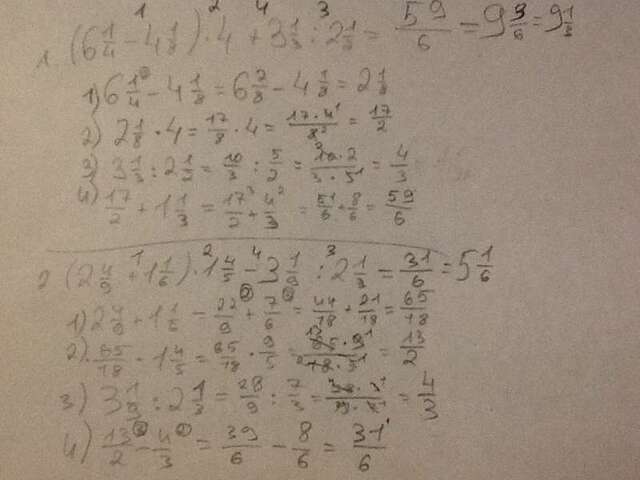 1 2 4 3
1. (6 1/4 - 4 1/8) · 4 + 3 1/3 : 2 1/2 = 59/6 = 9 3/6 = 9 1/3
1) 6 1/4 - 4 1/8 = 6 2/8 - 4 1/8 = 2 1/8
2) 2 1/8 · 4 = 17/8 · 4 = 17 · 4/8 = 17/2
3) 3 1/3 : 2 1/2 = 10/3 : 5/2 = 10 · 2/3 · 5 = 4/3
4) 17/2 + 1 1/3 = 17/2 + 4/3 = 51/6 + 8/6 = 59/6
1 2 4 3
2 (2 4/9 + 1 1/6) · 1 4/5 - 3 1/9 : 2 1/3 = 31/6 = 5 1/6
1) 2 4/9 + 1 1/6 = 22/9 + 7/6 = 44/18 + 21/18 = 65/18
2) 65/18 · 1 4/5 = 65/18 · 9/5 = 65 · 9/18 · 5 = 13/2
3) 3 1/9 : 2 1/3 = 28/9 : 7/3 = = 4/3
4) 13/2 - 4/3 = 39/6 - 8/6 = 31/6